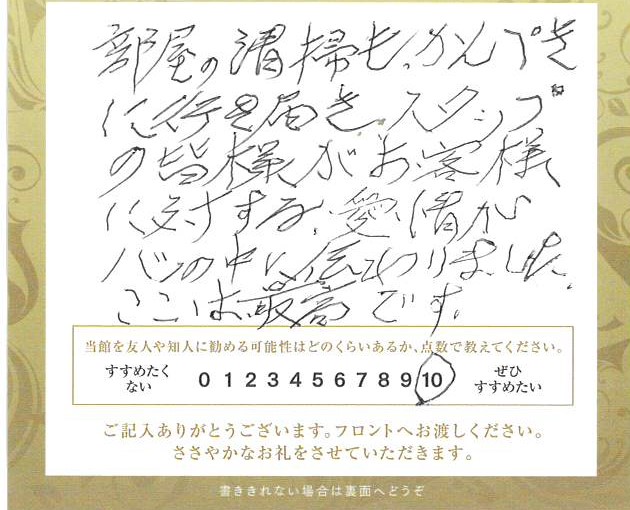 部屋の清掃も、かんぺき
に行き届き、スタッフ
の皆様がお客様
に対する、愛情が
の中に伝わりました。
ここは最高です。
当館を友人や知人に勧める可能性はどのくらいあるか、点数で教えてください。
すすめたくない 0 1 2 3 4 5 6 7 8 9 10 ぜひすすめたい
ご記入ありがとうございます。フロントへお渡しください。
ささやかなお礼をさせていただきます。
書ききれない場合は裏面へどうぞ